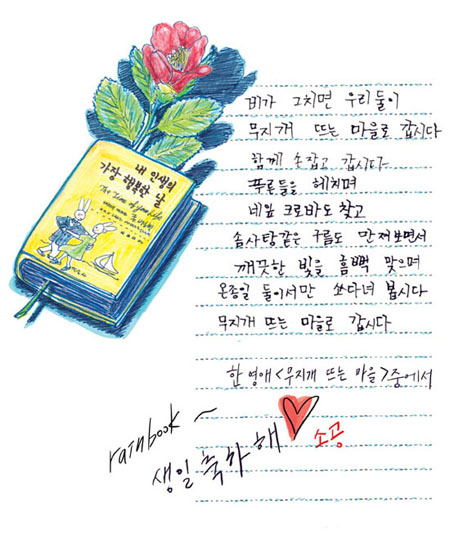 내 인생의
가장 행복한 날
The Time of your Life
비가 그치면 우리들이
무지개 뜨는 마을로 갑시다
함께 손잡고 갑시다
푸른들을 헤치며
네잎 크로바도 찾고
솜사탕같은 구름도 만져보면서
깨끗한 빛을 흠뻑 맞으며
온종일 둘이서만 쏘다녀 봅시다
무지개 뜨는 마을로 갑시다
한영애 <무지개 뜨는 마을> 중에서
rainbook ~
생일 축하해
소공